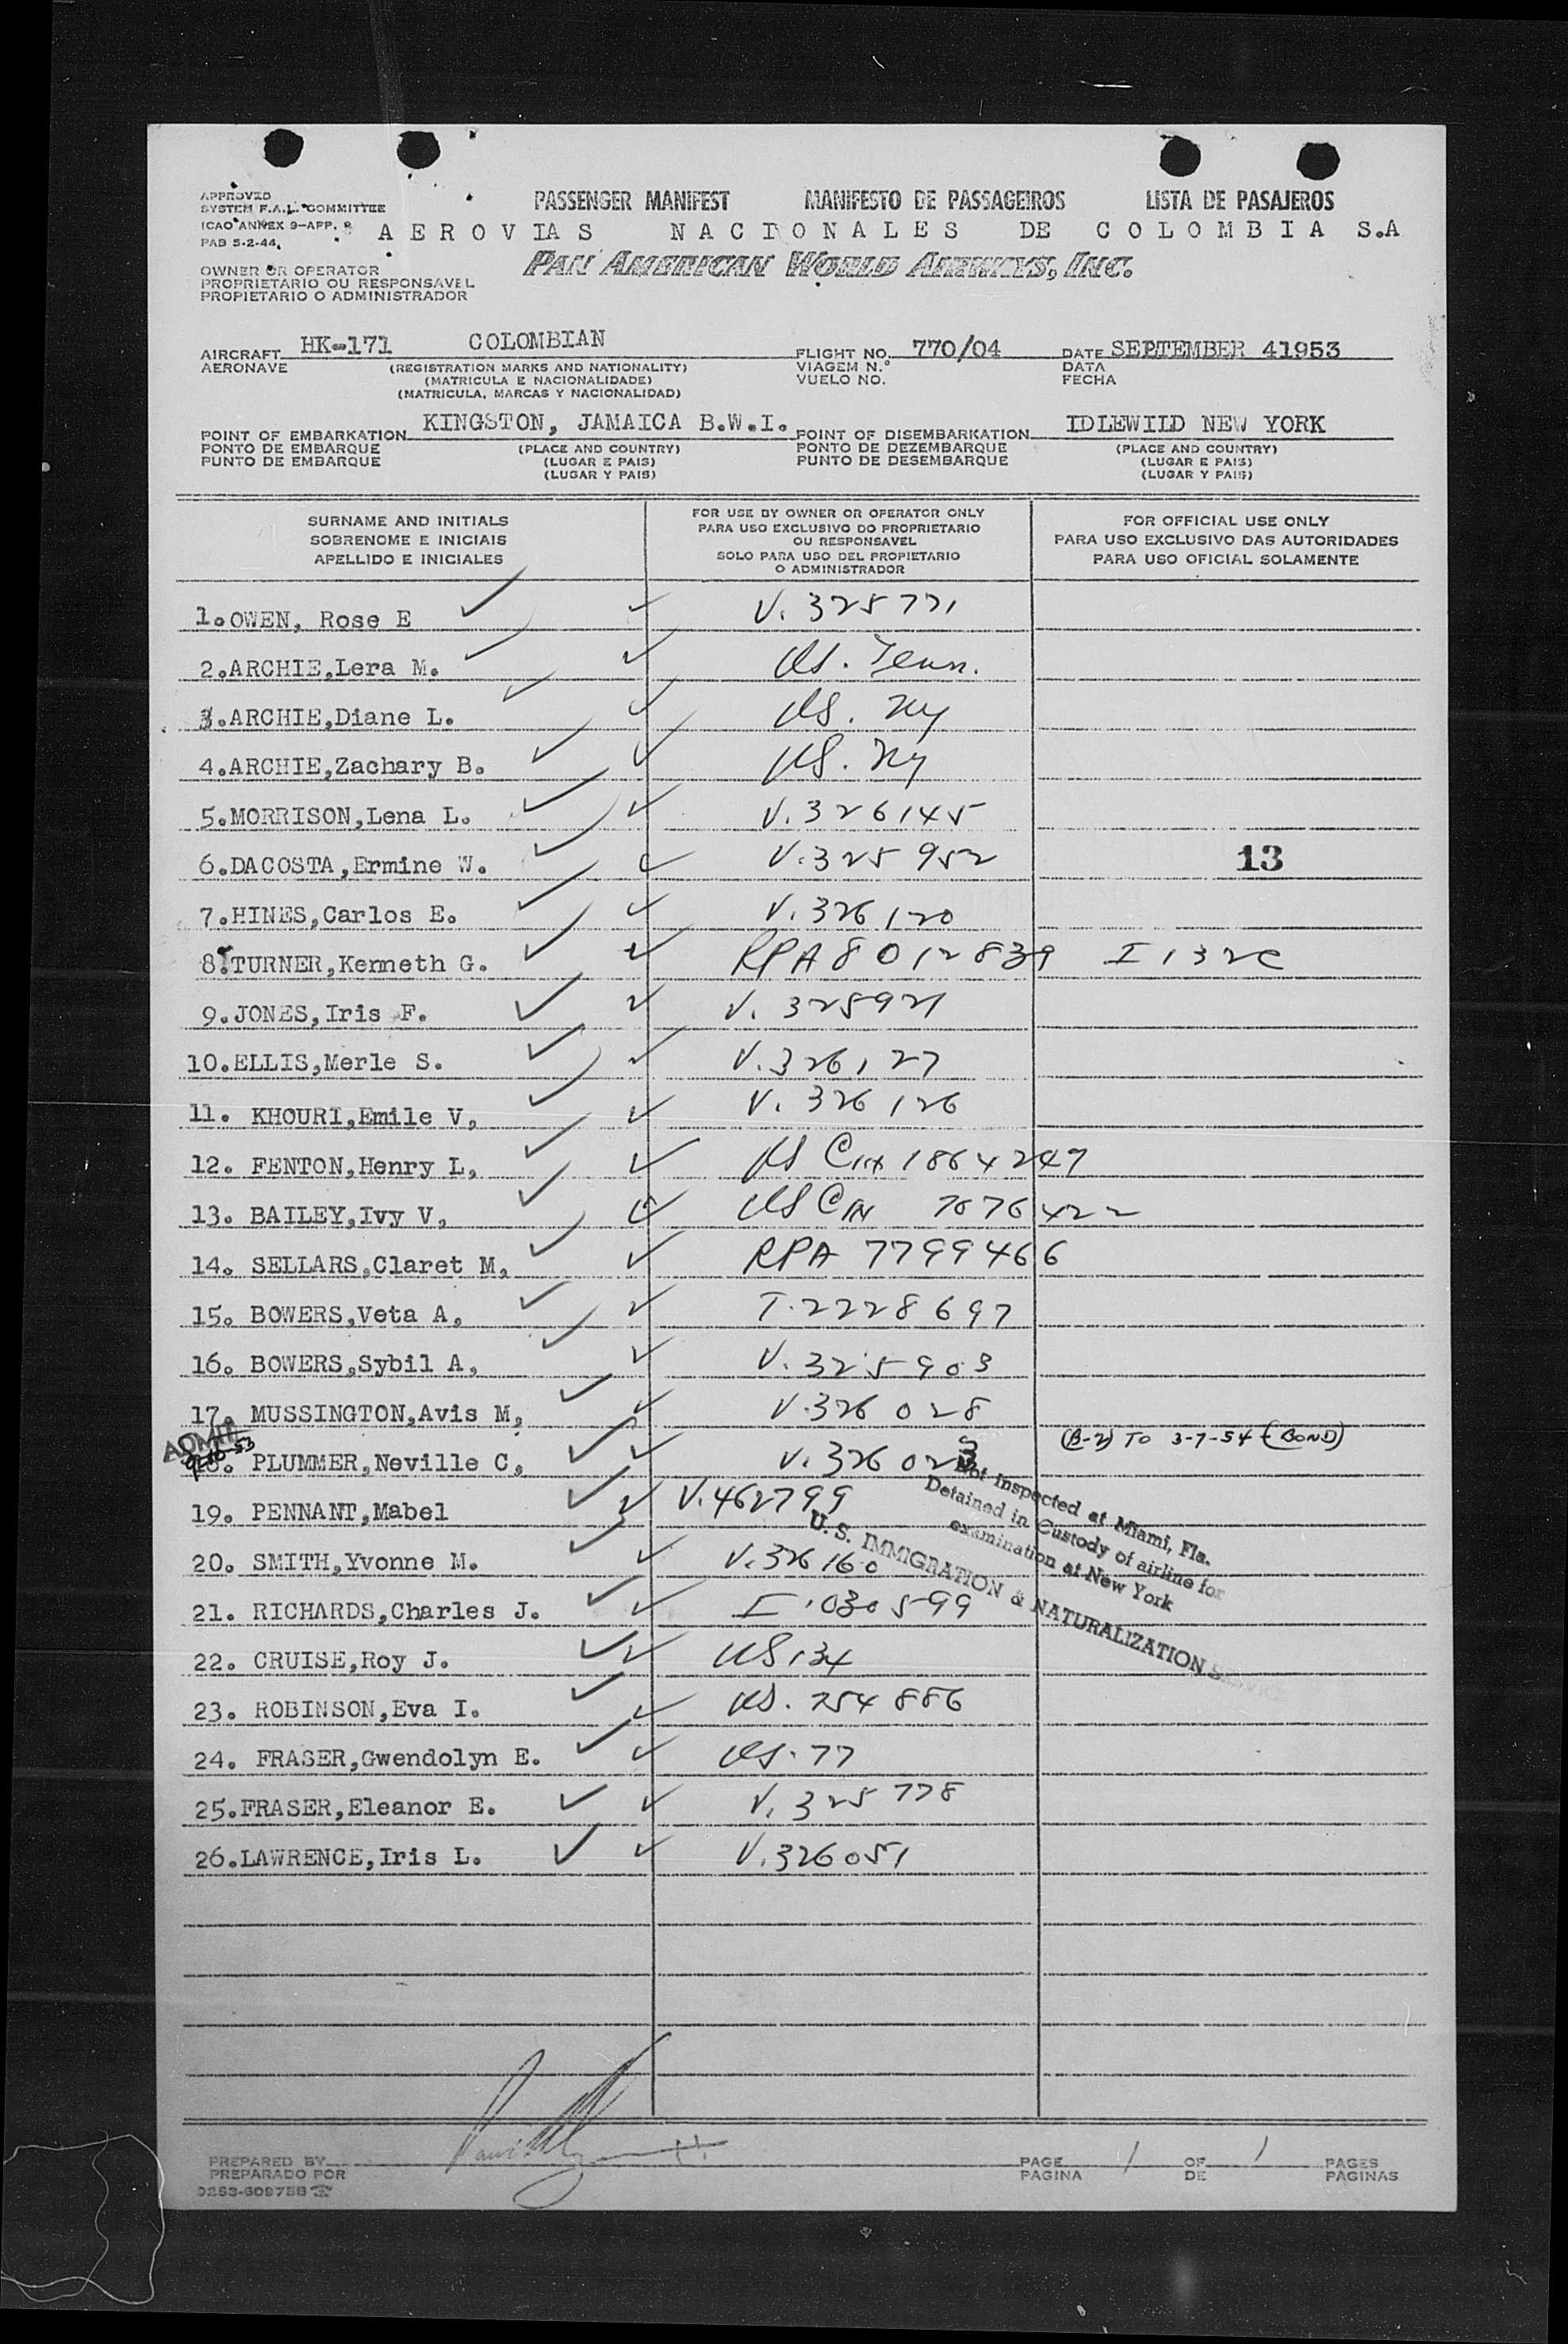 APPROVED
SYSTEM F.A.L. COMMITTEE
ICAO ANNEX 9—APP.
PAB 5-2-44
PASSENGER MANIFEST MANIFESTO DE PASSAGEIROS LISTA DE PASAJEROS
AEROVIAS NACIONALES DE COLOMBIA S.A
PAN AMERICAN WORLD AIRWAYS, INC.
OWNER OR OPERATOR
PROPRIETARIO OU RESPONSAVEL
PROPIETARIO O ADMINISTRADOR
AIRCRAFT HK-171 COLOMBIAN FLIGHT NO. 770/04 DATE SEPTEMBER 41953
AERONAVE (REGISTRATION MARKS AND NATIONALITY) VIAGEM N.° DATA
(MATRICULA E NACIONALIDADE) VUELO NO. FECHA
(MATRICULA, MARCAS Y NACIONALIDAD)
POINT OF EMBARKATION KINGSTON, JAMAICA B.W.I. POINT OF DISEMBARKATION IDLEWILD NEW YORK
PONTO DE EMBARQUE (PLACE AND COUNTRY) PONTO DE DEZEMBARQUE (PLACE AND COUNTRY)
PUNTO DE EMBARQUE (LUGAR E PAIS) PUNTO DE DESEMBARQUE (LUGAR E PAIS)
(LUGAR Y PAIS) (LUGAR Y PAIS)
SURNAME AND INITIALS
SOBRENOME E INICIAIS
APELLIDO E INICIALES
FOR USE BY OWNER OR OPERATOR ONLY
PARA USO EXCLUSIVO DO PROPRIETARIO
OU RESPONSAVEL
SOLO PARA USO DEL PROPIETARIO
O ADMINISTRADOR
FOR OFFICIAL USE ONLY
PARA USO EXCLUSIVO DAS AUTORIDADES
PARA USO OFICIAL SOLAMENTE
1. OWEN, Rose E V. 325771
2.ARCHIE,Lera M. US. Tenn.
3.ARCHIE,Diane L. US. NY
4.ARCHIE,Zachary B. US. NY
5.MORRISON,Lena L. V. 326145
6.DACOSTA,Ermine W. V. 325952 13
7.HINES,Carlos E. V. 326120
8.TURNER,Kenneth G. RPA 8012839 I 132c
9.JONES,Iris F. V. 325921
10.ELLIS,Merle S. V. 326127
11. KHOURI,Emile V, V. 326126
12. FENTON,Henry L, US 1864247
13. BAILEY,Ivy V, US CIN 7676422
14. SELLARS,Claret M, RPA 7799466
15. BOWERS,Veta A, T. 2228697
16. BOWERS,Sybil A, V. 325903
17. MUSSINGTON,Avis M, V. 326028
ADMIT
(B-2) TO 3-7-54 (BOND)
18. PLUMMER,Neville C, V. 326023
19. PENNANT,Mabel V. 462799
20. SMITH,Yvonne M. V. 326160
21. RICHARDS,Charles J. I. 030599
22. CRUISE,Roy J. US 134
23. ROBINSON,Eva I. US. 254886
24. FRASER,Gwendolyn E. US. 77
25.FRASER,Eleanor E. V. 325778
26.LAWRENCE,Iris L. V. 326051
Not inspected at Miami, Fla.
Detained in Custody of airline for
examination at New York
U. S. IMMIGRATION & NATURALIZATION
PREPARED BY PAGE 1 OF 1 PAGES
PREPARADO POR PAGINA DE PAGINAS